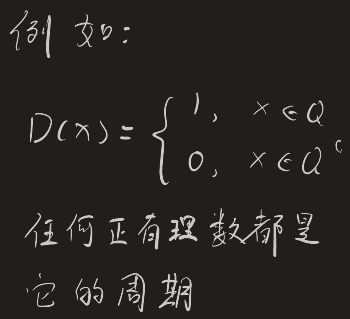 例如:
D(x) = { 1, x ∈ Q
0, x ∈ Q^c
任何正有理数都是
它的周期